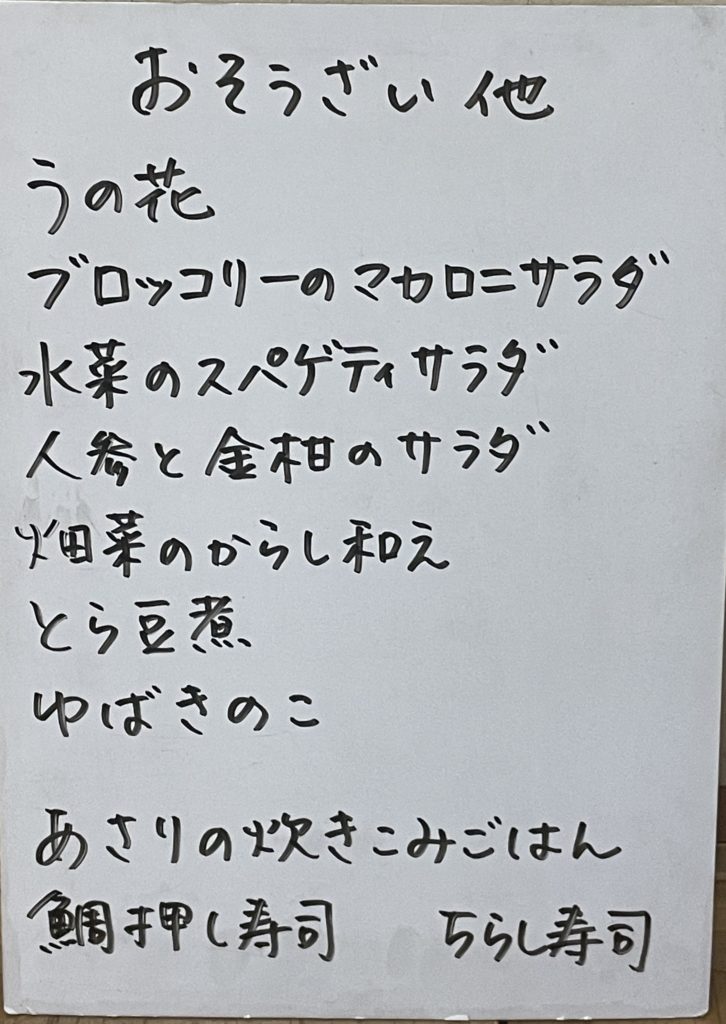 おそうざい 他
うの花
ブロッコリーのマカロニサラダ
水菜のスパゲティサラダ
人参と金柑のサラダ
畑菜のからし和え
とら豆煮
ゆばきのこ
あさりの炊きこみごはん
鯛押し寿司 ちらし寿司